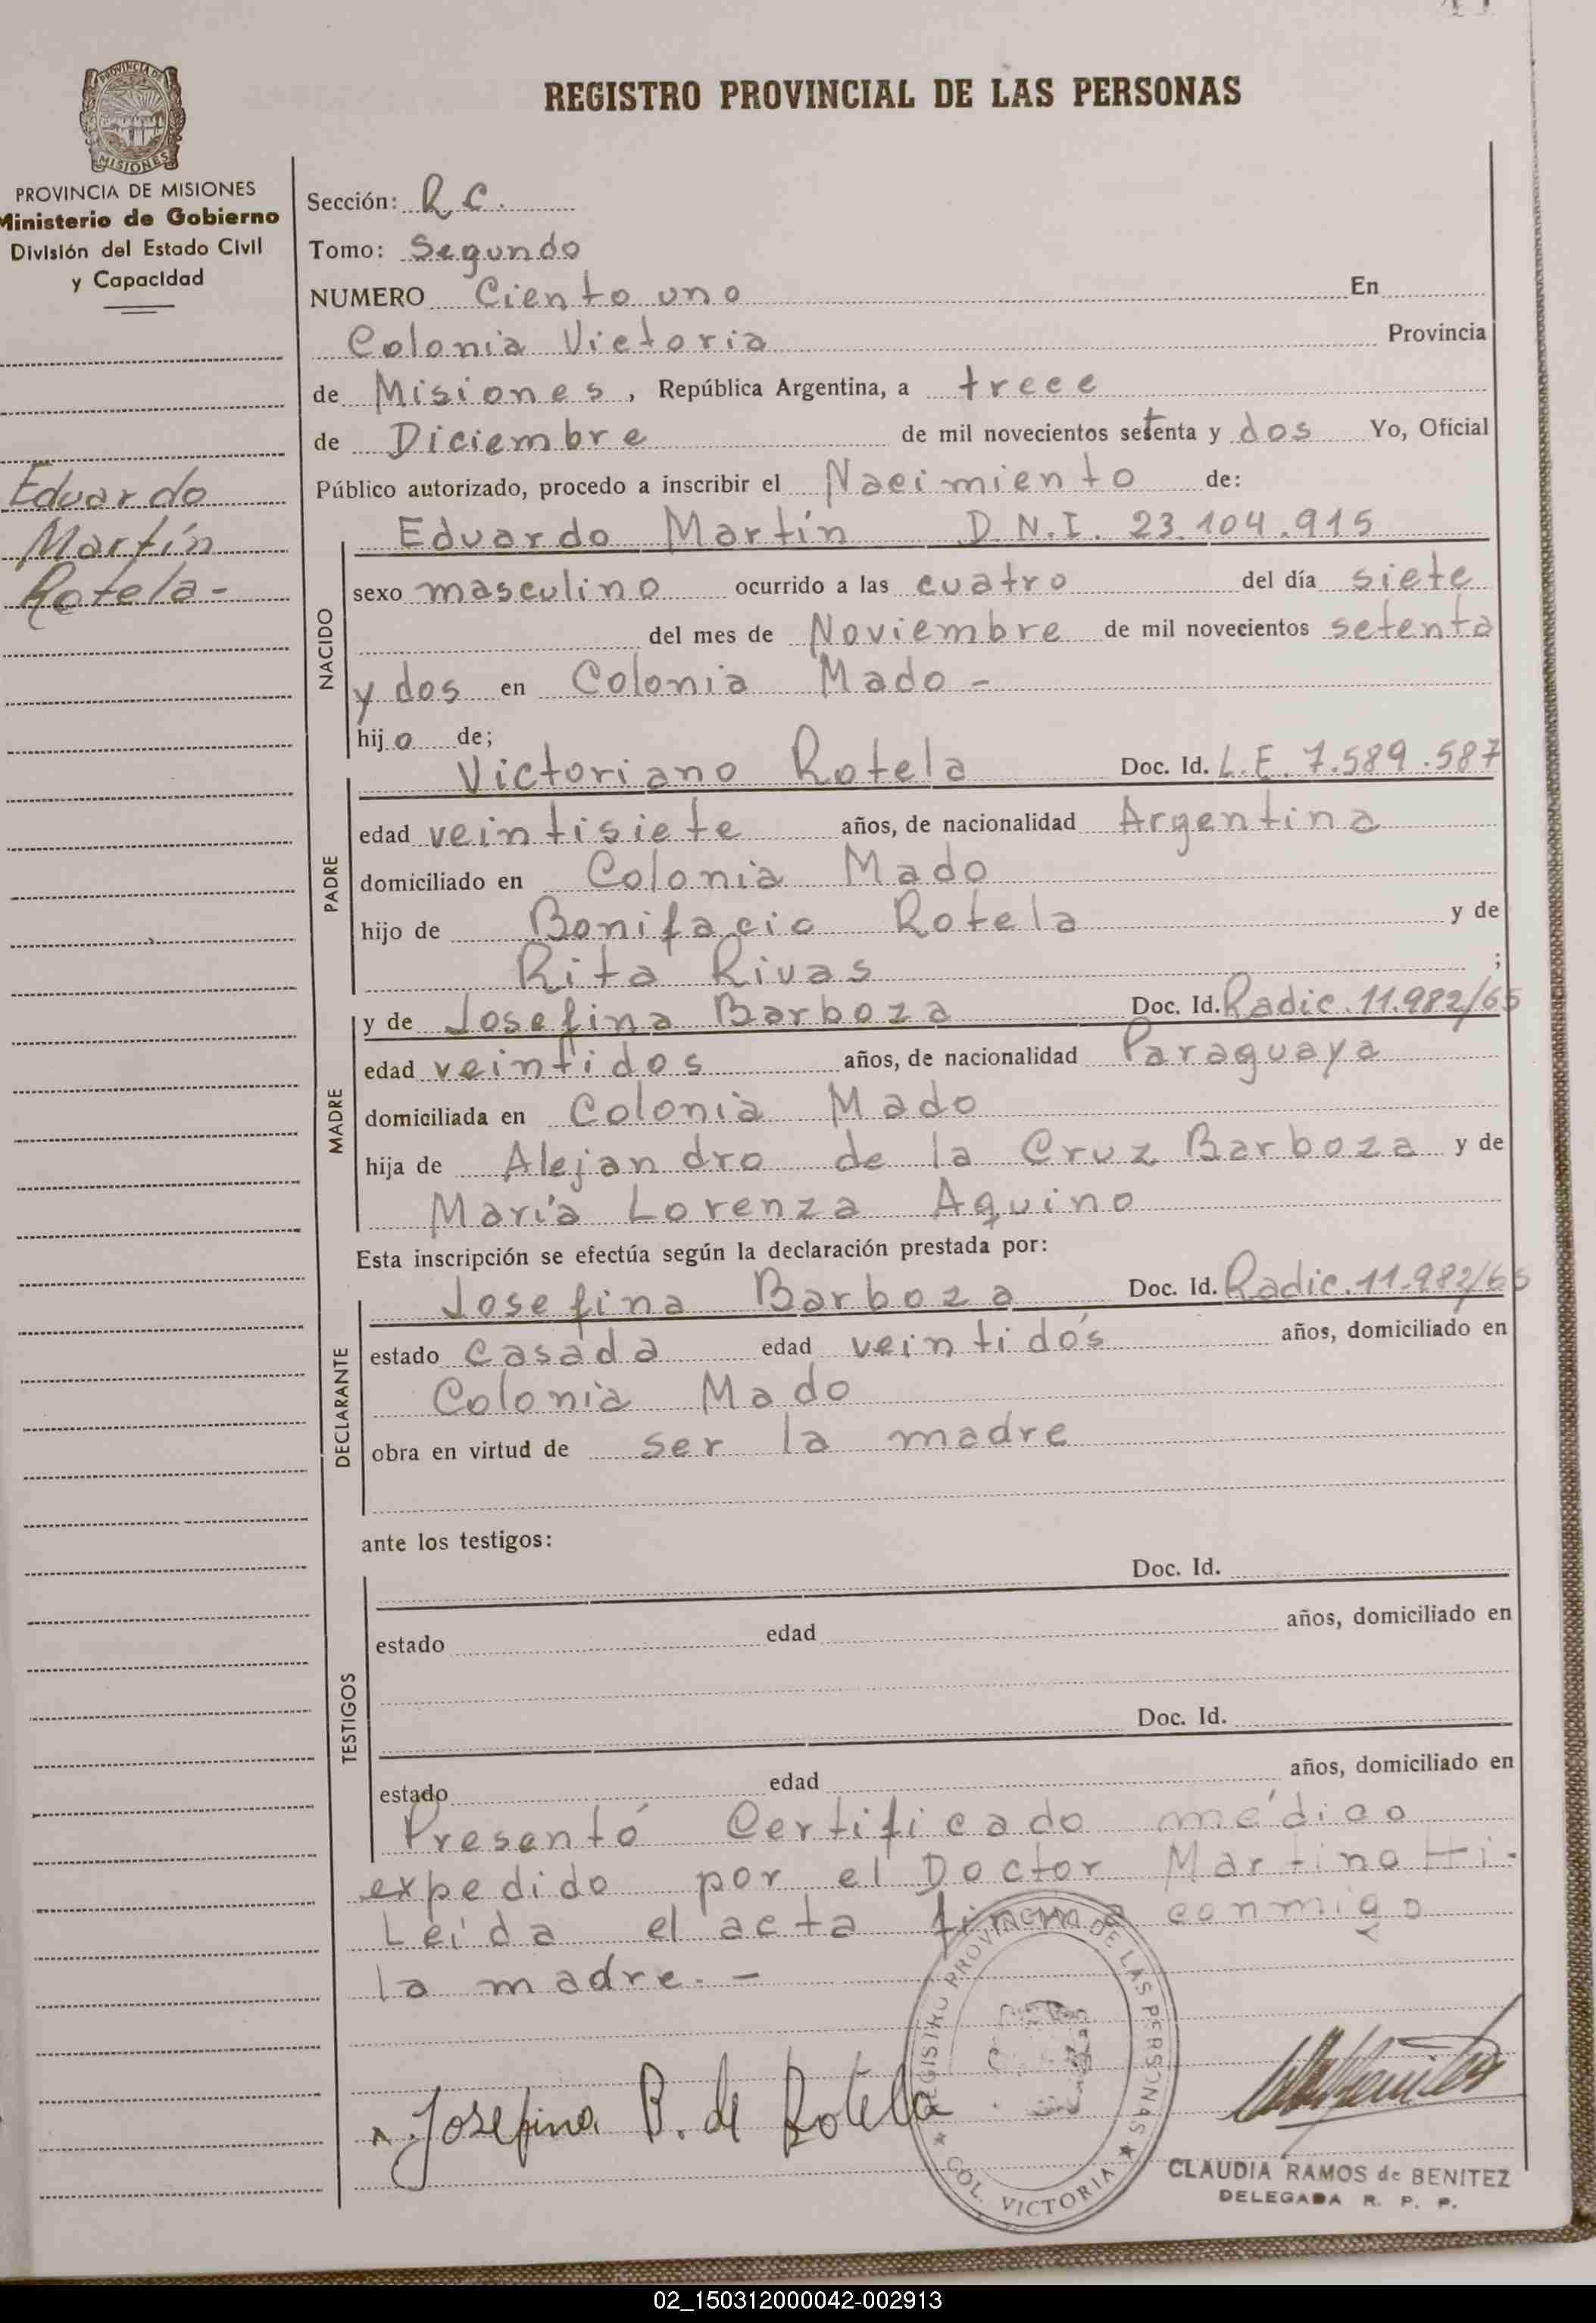 REGISTRO PROVINCIAL DE LAS PERSONAS
PROVINCIA DE
MISIONES
PROVINCIA DE MISIONES
Ministerio de Gobierno
División del Estado Civil
y Capacidad
Eduardo
Martín
Rotela-
Sección: R C.
Tomo: Segundo
NUMERO Ciento uno En
Colonia Victoria Provincia
de Misiones, República Argentina, a trece
de Diciembre de mil novecientos setenta y dos Yo, Oficial
Público autorizado, procedo a inscribir el Nacimiento de:
Eduardo Martín D.N.I. 23.104.915
NACIDO
sexo masculino ocurrido a las cuatro del día siete
del mes de Noviembre de mil novecientos setenta
y dos en Colonia Mado -
hijo de;
PADRE
Victoriano Rotela Doc. Id. L.E. 7.589.587
edad veintisiete años, de nacionalidad Argentina
domiciliado en Colonia Mado
hijo de Bonifacio Rotela y de
Rita Rivas ;
MADRE
y de Josefina Barboza Doc. Id. Radic. 11.982/65
edad veintidos años, de nacionalidad Paraguaya
domiciliada en Colonia Mado
hija de Alejandro de la Cruz Barboza y de
María Lorenza Aquino
Esta inscripción se efectúa según la declaración prestada por:
DECLARANTE
Josefina Barboza Doc. Id. Radic. 11.982/65
estado casada edad veintidós años, domiciliado en
Colonia Mado
obra en virtud de ser la madre
ante los testigos:
TESTIGOS
Doc. Id.
estado edad años, domiciliado en
Doc. Id.
estado edad años, domiciliado en
Presentó Certificado médico
expedido por el Doctor Martinotti.
Leída el acta firma conmigo
la madre. -
Josefina B. de Rotela
REGISTRO PROVINCIAL DE LAS PERSONAS
★ COL. VICTORIA ★
CLAUDIA RAMOS de BENITEZ
DELEGADA R. P. P.
02_150312000042-002913